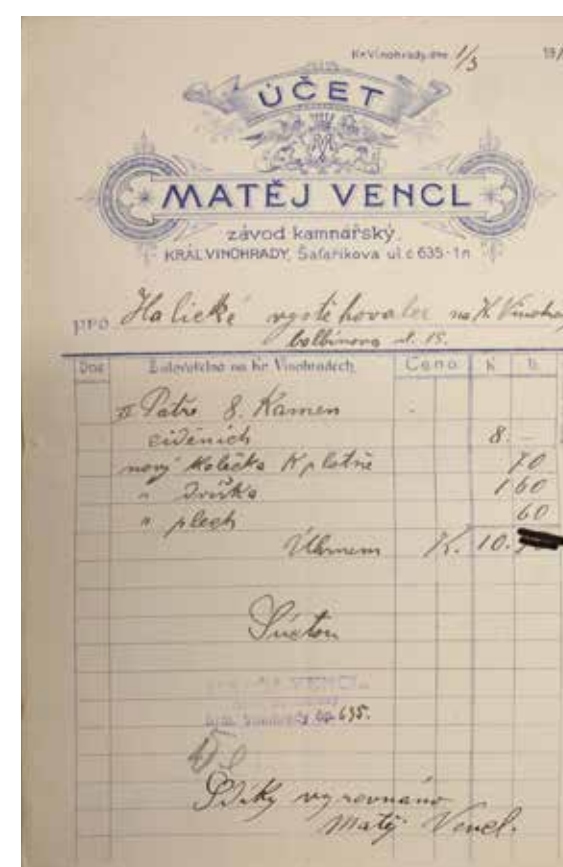 Kr. Vinohrady, dne 1/3 19
ÚČET
MV
MATĚJ VENCL
závod kamnářský,
KRÁL. VINOHRADY, Šafaříkova ul. č. 635-1n
pro Halické vystěhovalce na K. Vinohra
balbinova ul. 15.
Dne Žalovatelno na Kr. Vinohradech. Cena K h
II Patře 8. Kamen
ciděních 8. —
nový kolečka K plotně 70
" Dvířka 1 60
" plech 60
Úhrnem K. 10.
VENCL
Král. Vinohrady čp. 635.
Díky vyrovnáno
Matěj Vencl.